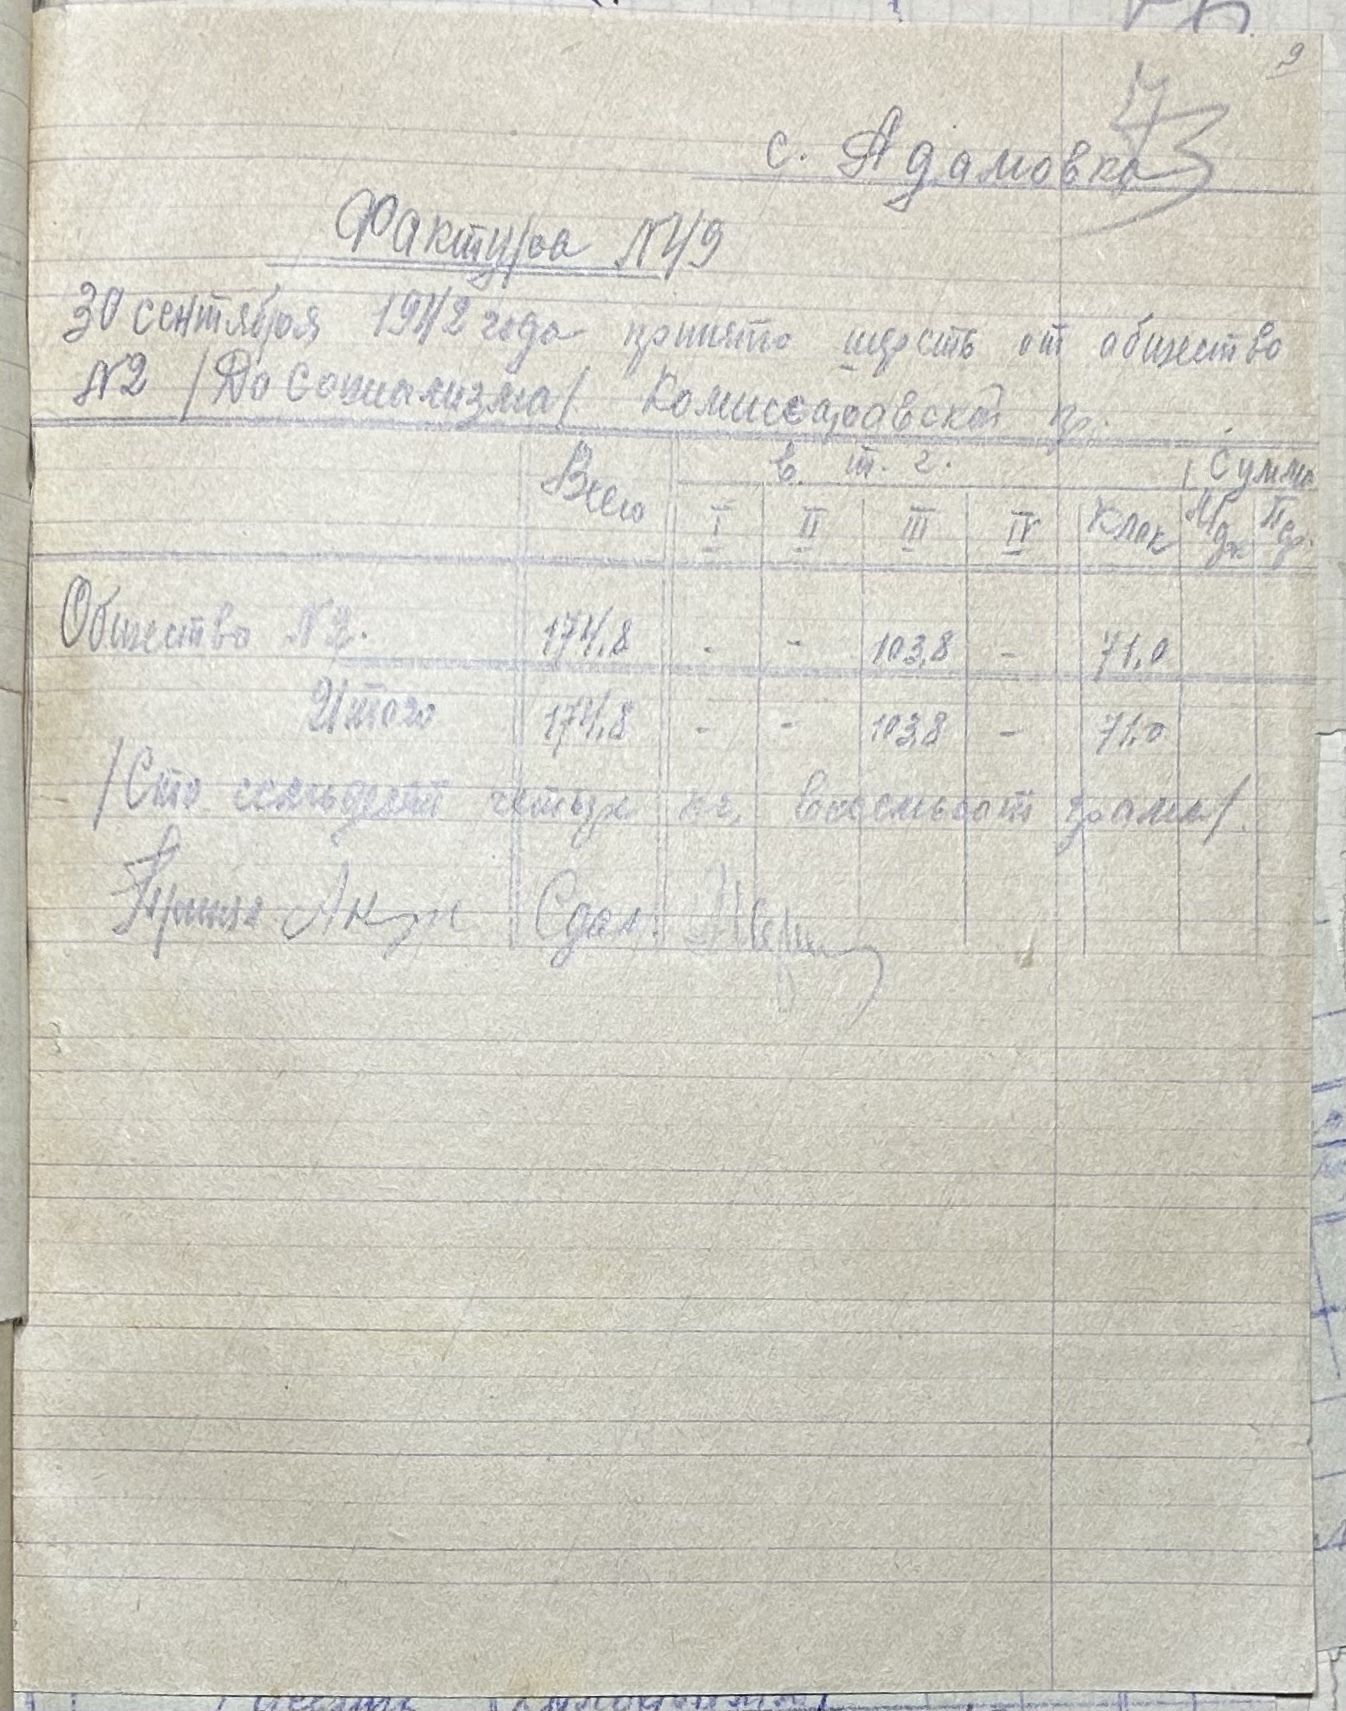 9
73
с. Адамовка
Фактура №49
30 сентября 1942 года принято шерсть от общество
№2 /До Социализма/ Комиссаровской гр.
Всего в т. г. Сумма
I II III IV Клок
Общество №2. 174,8 - - 103,8 - 71,0
Итого 174,8 - - 103,8 - 71,0
/Сто семьдесят четыре кг. восемьсот грамм/.
Принял Сдал: